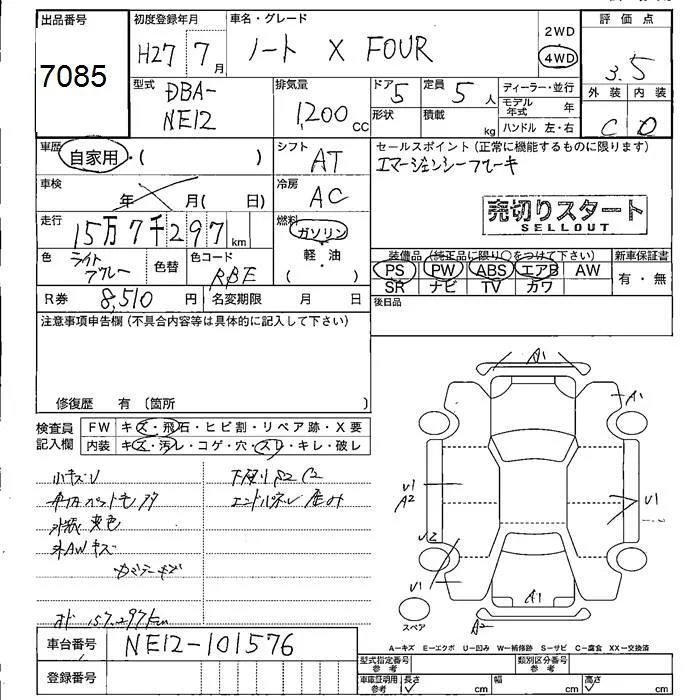 出品番号
7085
初度登録年月
H27 7月
車名・グレード
ノート X FOUR
2WD
4WD
評価点
3.5
外装 内装
C D
型式
DBA-
NE12
排気量
1,200 cc
ドア 5
定員 5 人
形状
積載 kg
ディーラー・並行
モデル年式 年
ハンドル 左・右
車歴
自家用・( )
シフト
AT
セールスポイント(正常に機能するものに限ります)
エマージェンシーブレーキ
車検
年 月( 日)
冷房
AC
売切りスタート
SELLOUT
走行
15万7千297km
燃料
ガソリン
軽・油
( )
色
ライト
グレー
色替
色コード
RBE
装備品(純正品に限り○をつけて下さい)
PS PW ABS エアB AW
SR ナビ TV カワ
新車保証書
有・無
R券 8,510 円
名変期限 月 日
後日品
注意事項申告欄(不具合内容等は具体的に記入して下さい)
修復歴 有〔箇所 〕
検査員
記入欄
FW キズ・飛石・ヒビ割・リペア跡・X要
内装 キズ・汚レ・コゲ・穴・スリ・キレ・破レ
小キズU
外装 変色
外AWキズ
A1
A1
U1
A2
U1
U2
U1
A1
A2
スペア
A-キズ E-エクボ U-凹み W-補修跡 S-サビ C-腐食 XX-交換済
車台番号
NE12-101576
登録番号
型式指定番号
参考
類別区分番号
参考
車庫証明用
参考
長さ cm
幅 cm
高さ cm